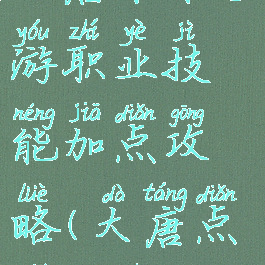 yóu zhí yè jì
游职业技
néng jiā diǎn gōng
能加点攻
lüè dà táng diǎn
略(大唐点